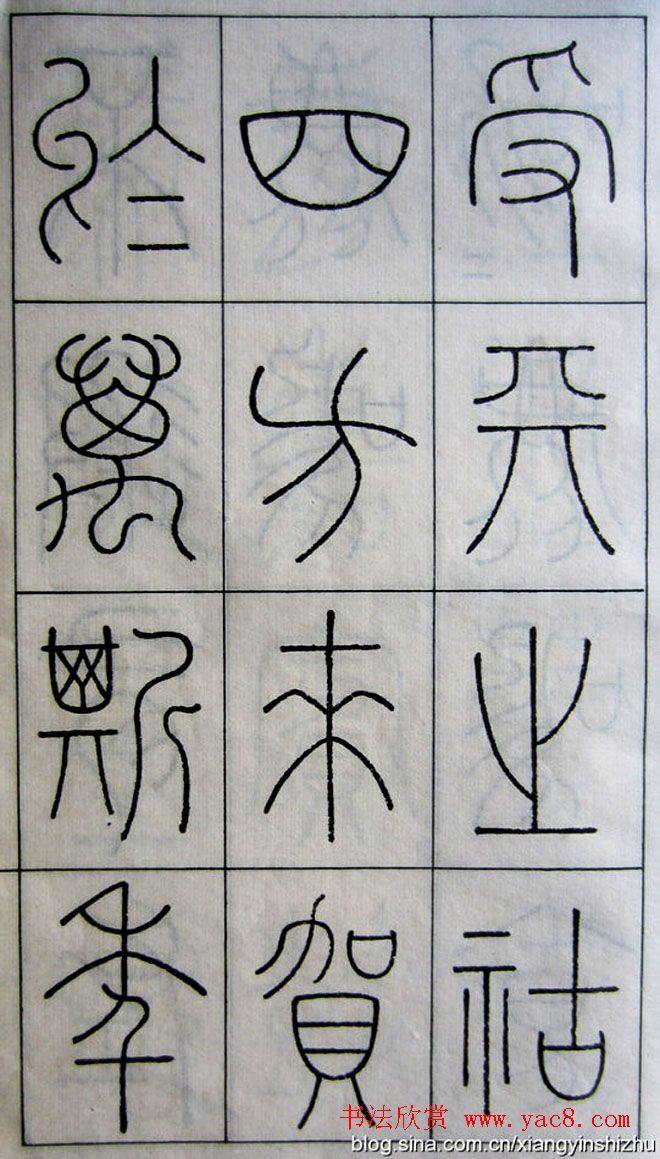 受天之祜
四方來賀
於萬斯年
书法欣赏 www.yac8.com
blog.sina.com.cn/xiangyinshizhu